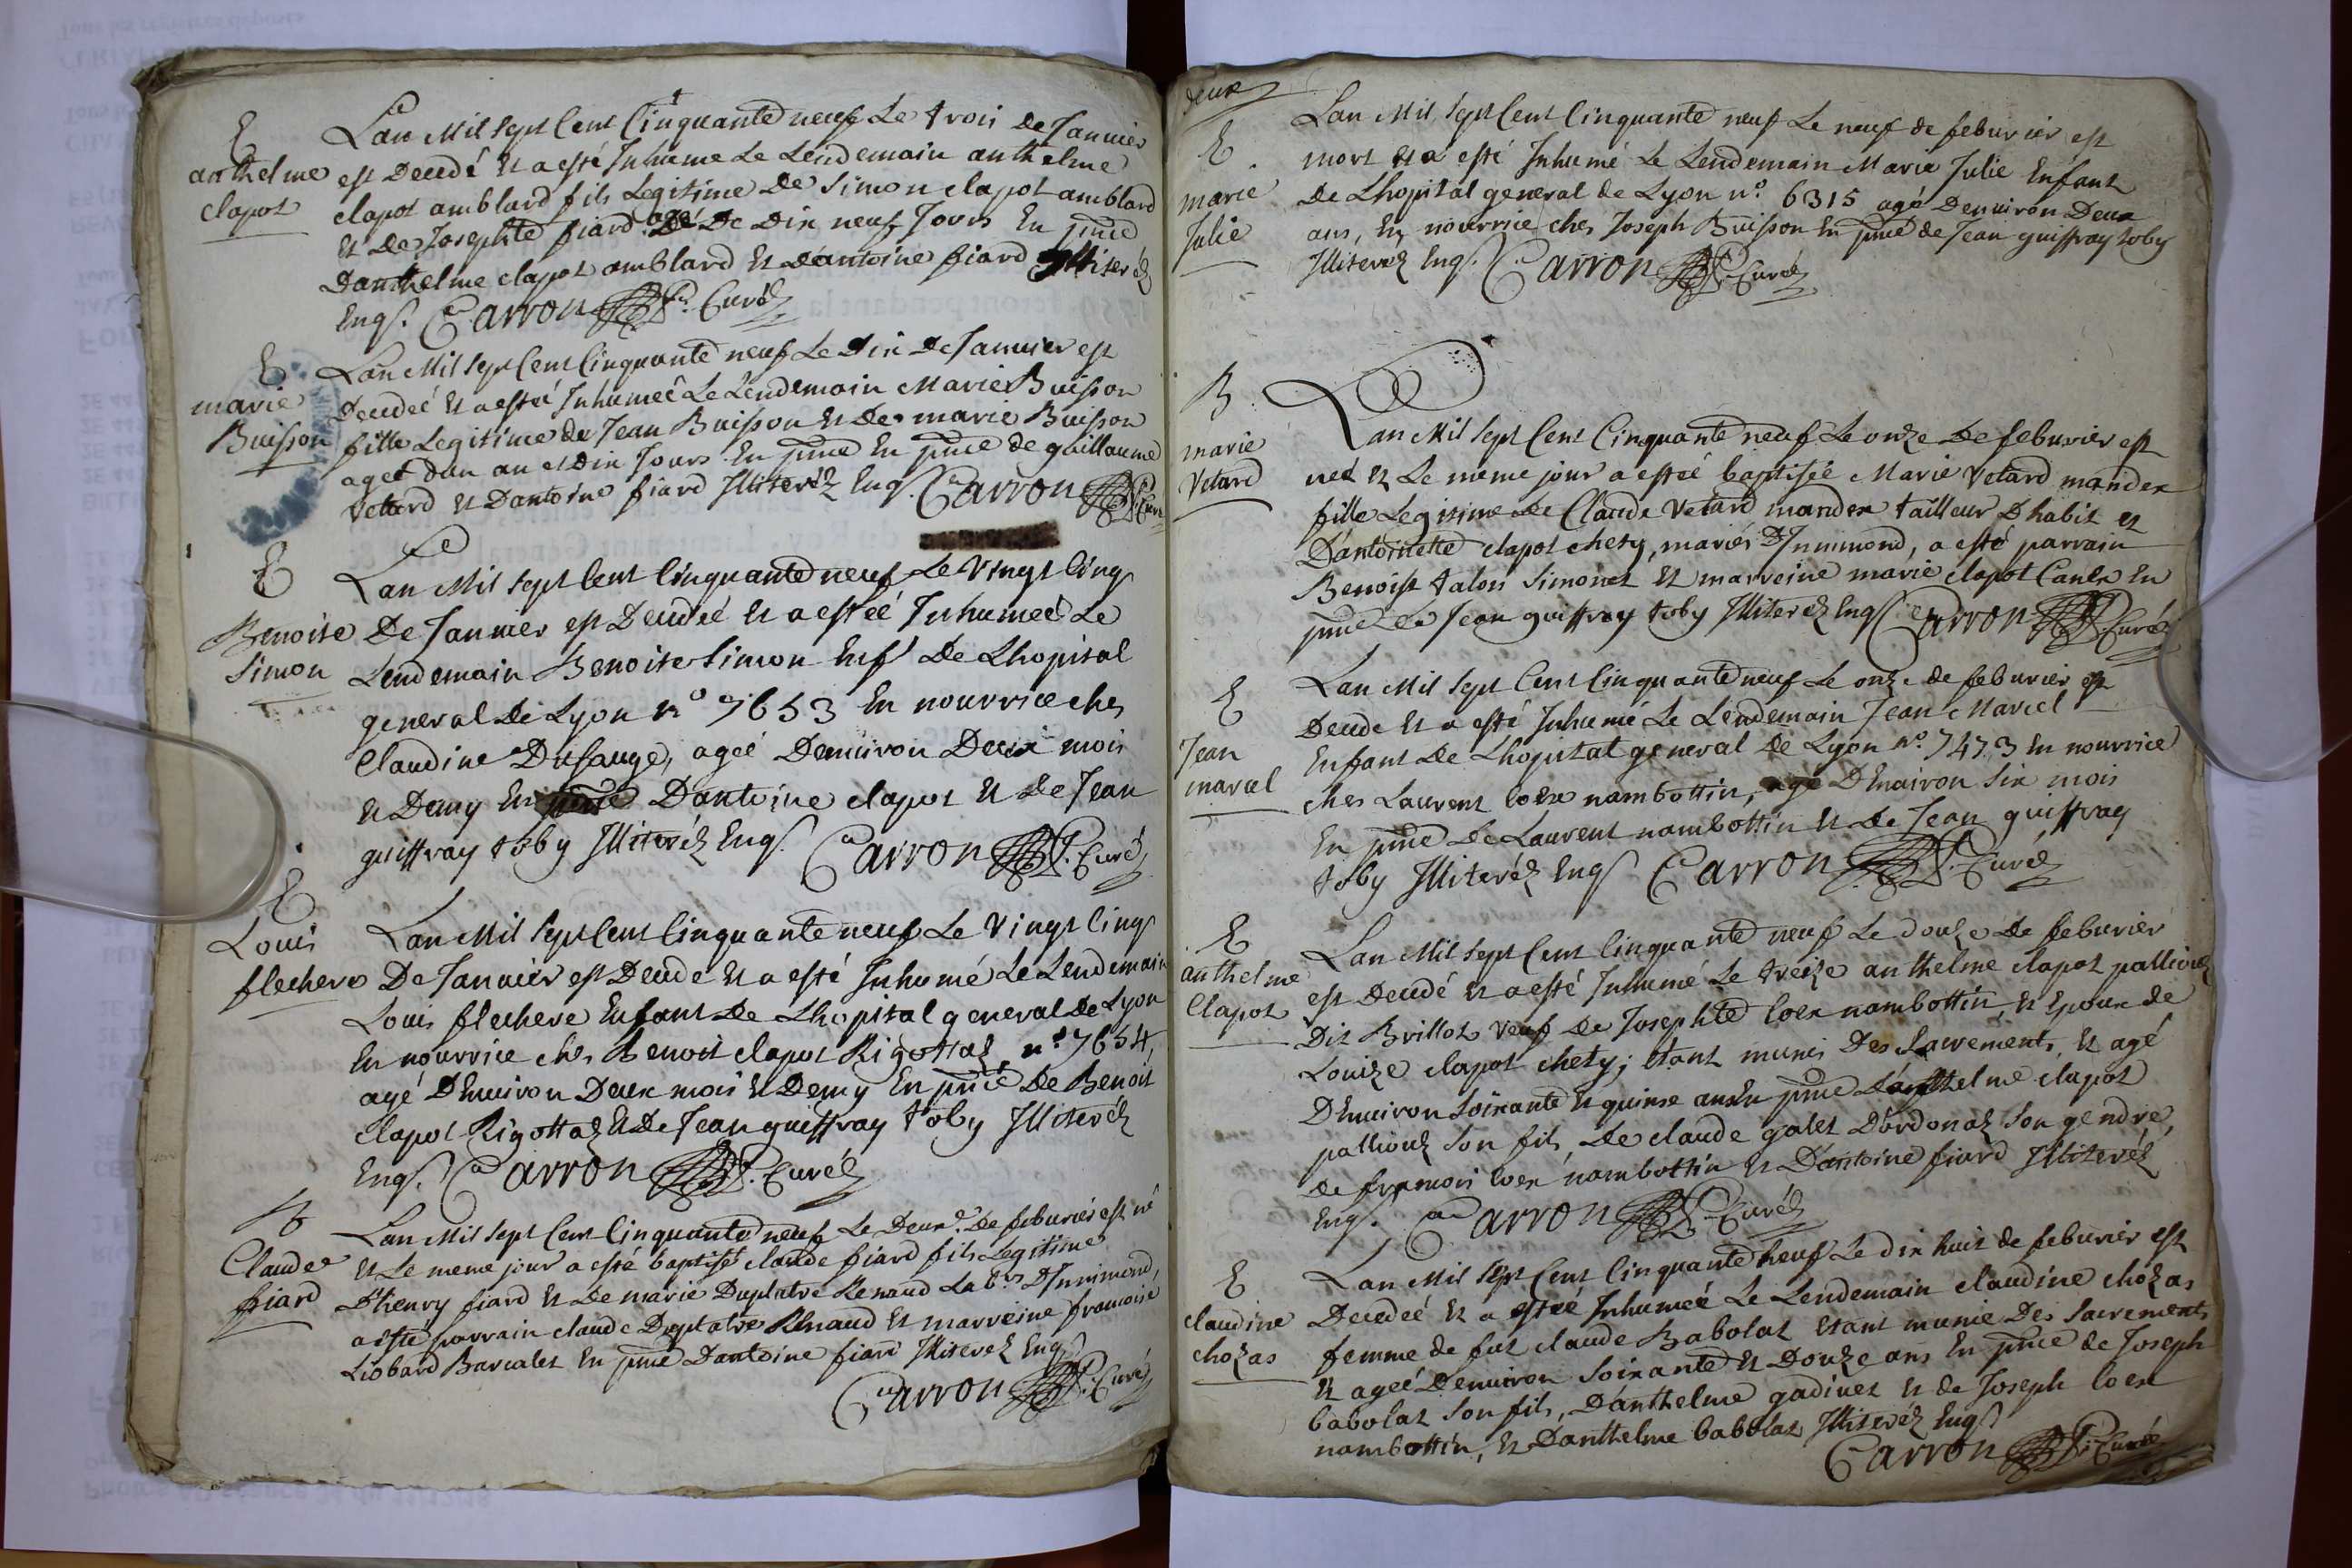 E
anthelme
clapot
Lan Mil sept Cent Cinquante neuf Le trois de Janvier
est Decedé et a esté Inhume Le Lendemain anthelme
clapot amblard fils Legitime De Simon clapot amblard
et De Josephte fiard agé De Dix neuf Jours En pnce
Danthelme clapot amblard et dantoine fiard Illiteréz
Enqs. Carron Curéz
E
marie
Buisson
Lan Mil sept Cent Cinquante neuf Le Dix De Janvier est
Decedeé et a esteé Inhumeé Le Lendemain Marie Buisson
fille Legitime de Jean Buisson et De marie Buisson
ageé dun an et Dix Jours En pnce En pnce de guillaume
Vetard et Dantoine fiard Illiteréz Enqs. Carron Curé
E
Benoite
Simon
Lan Mil sept Cent Cinquante neuf Le Vingt Cinq
De Janvier est Decedeé et a esteé Inhumeé Le
Lendemain Benoite Simon Enft De Lhopital
general de Lyon n° 7653 En nourrice ches
Claudine Dufauge, ageé Denviron Deux mois
et Demy En pnce Dantoine clapot et de Jean
guiffray toby Illiteréz Enqs. Carron Curé
E
Louis
flechere
Lan Mil Sept Cent Cinquante neuf Le Vingt Cinq
De Janvier est Decedé et a esté Inhumé Le Lendemain
Louis flechere Enfant De Lhopital general de Lyon
En nourrice ches Benoit clapot Rigottaz n° 7654,
agé Denviron Deux mois et Demy En pnce De Benoit
clapot Rigottaz et De Jean guiffray toby Illiteréz
Enqs. Carron Curéz
B
Claude
fiard
Lan Mil sept Cent Cinquante neuf Le Deux De feburier est né
et Le meme jour a esté baptisé claude fiard fils Legitime
Dhenry fiard et De marie Duplatre Renaud Labrs Dinnimond,
a esté parrain claude Duplatre Renaud et marreine francoise
Liobard Barcalet En pnce Dantoine fiard Illiterez Enqs
Carron Curéz
deux
E
marie
Julie
Lan Mil sept Cent Cinquante neuf Le neuf de feburier est
mort et a esté Inhumé Le Lendemain Marie Julie Enfant
De Lhopital general de Lyon n° 6315 agé Denviron Deux
ans, En nourrice ches Joseph Buisson En pnce de Jean guiffray toby
Illiterez Enqs. Carron Curéz
B
marie
Vetard
Lan Mil sept Cent Cinquante neuf Le onze De feburier est
neé et Le meme jour a esteé baptiseé Marie Vetard mandex
fille Legitime de Claude Vetard mandex tailleur Dhabit et
Dantoinette clapot chety, mariés Dinnimond, a esté parrain
Benoist talon Simonet et marreine marie clapot Canex En
pnce De Jean guiffray toby Illiteréz Enqs Carron Curéz
E
Jean
marcel
Lan Mil sept Cent Cinquante neuf Le onze de feburier est
Decede et a esté Inhumé Le Lendemain Jean Marcel
Enfant De Lhopital general De Lyon n° 7473 En nourrice
ches Laurent Coex nambottin, agé Denviron Six mois
En pnce De Laurent nambottin et De Jean guiffray
toby Illiteréz Enqs Carron Curéz
E
anthelme
Clapot
Lan Mil sept Cent Cinquante neuf Le douze De feburier
est Decedé et a esté Inhumé Le treize anthelme clapot pallioud
Dit Brillot veuf De Josephte Coex nambottin, et Epoux de
Louize clapot chety; Etant munis Des Sacrements, et agé
Denviron Soixante et quinse ans En pnce Danthelme clapot
pallioud Son fils, De claude galet Dordonaz Son gendre,
De francois Coex nambottin et Dantoine fiard Illiteréz
Enqs. Carron Curéz
E
claudine
chozas
Lan Mil Sept Cent Cinquante neuf Le dix huit de feburier est
Decedeé et a esteé Inhumeé Le Lendemain claudine chozas
femme de fut claude Babolat etant munie Des Sacrements
et ageé Denviron Soixante et Douze ans En pnce de Joseph
babolat Son fils, Danthelme gadinet et de Joseph Coex
nambottin, et Danthelme babolat Illiteréz Enqs
Carron Curéz